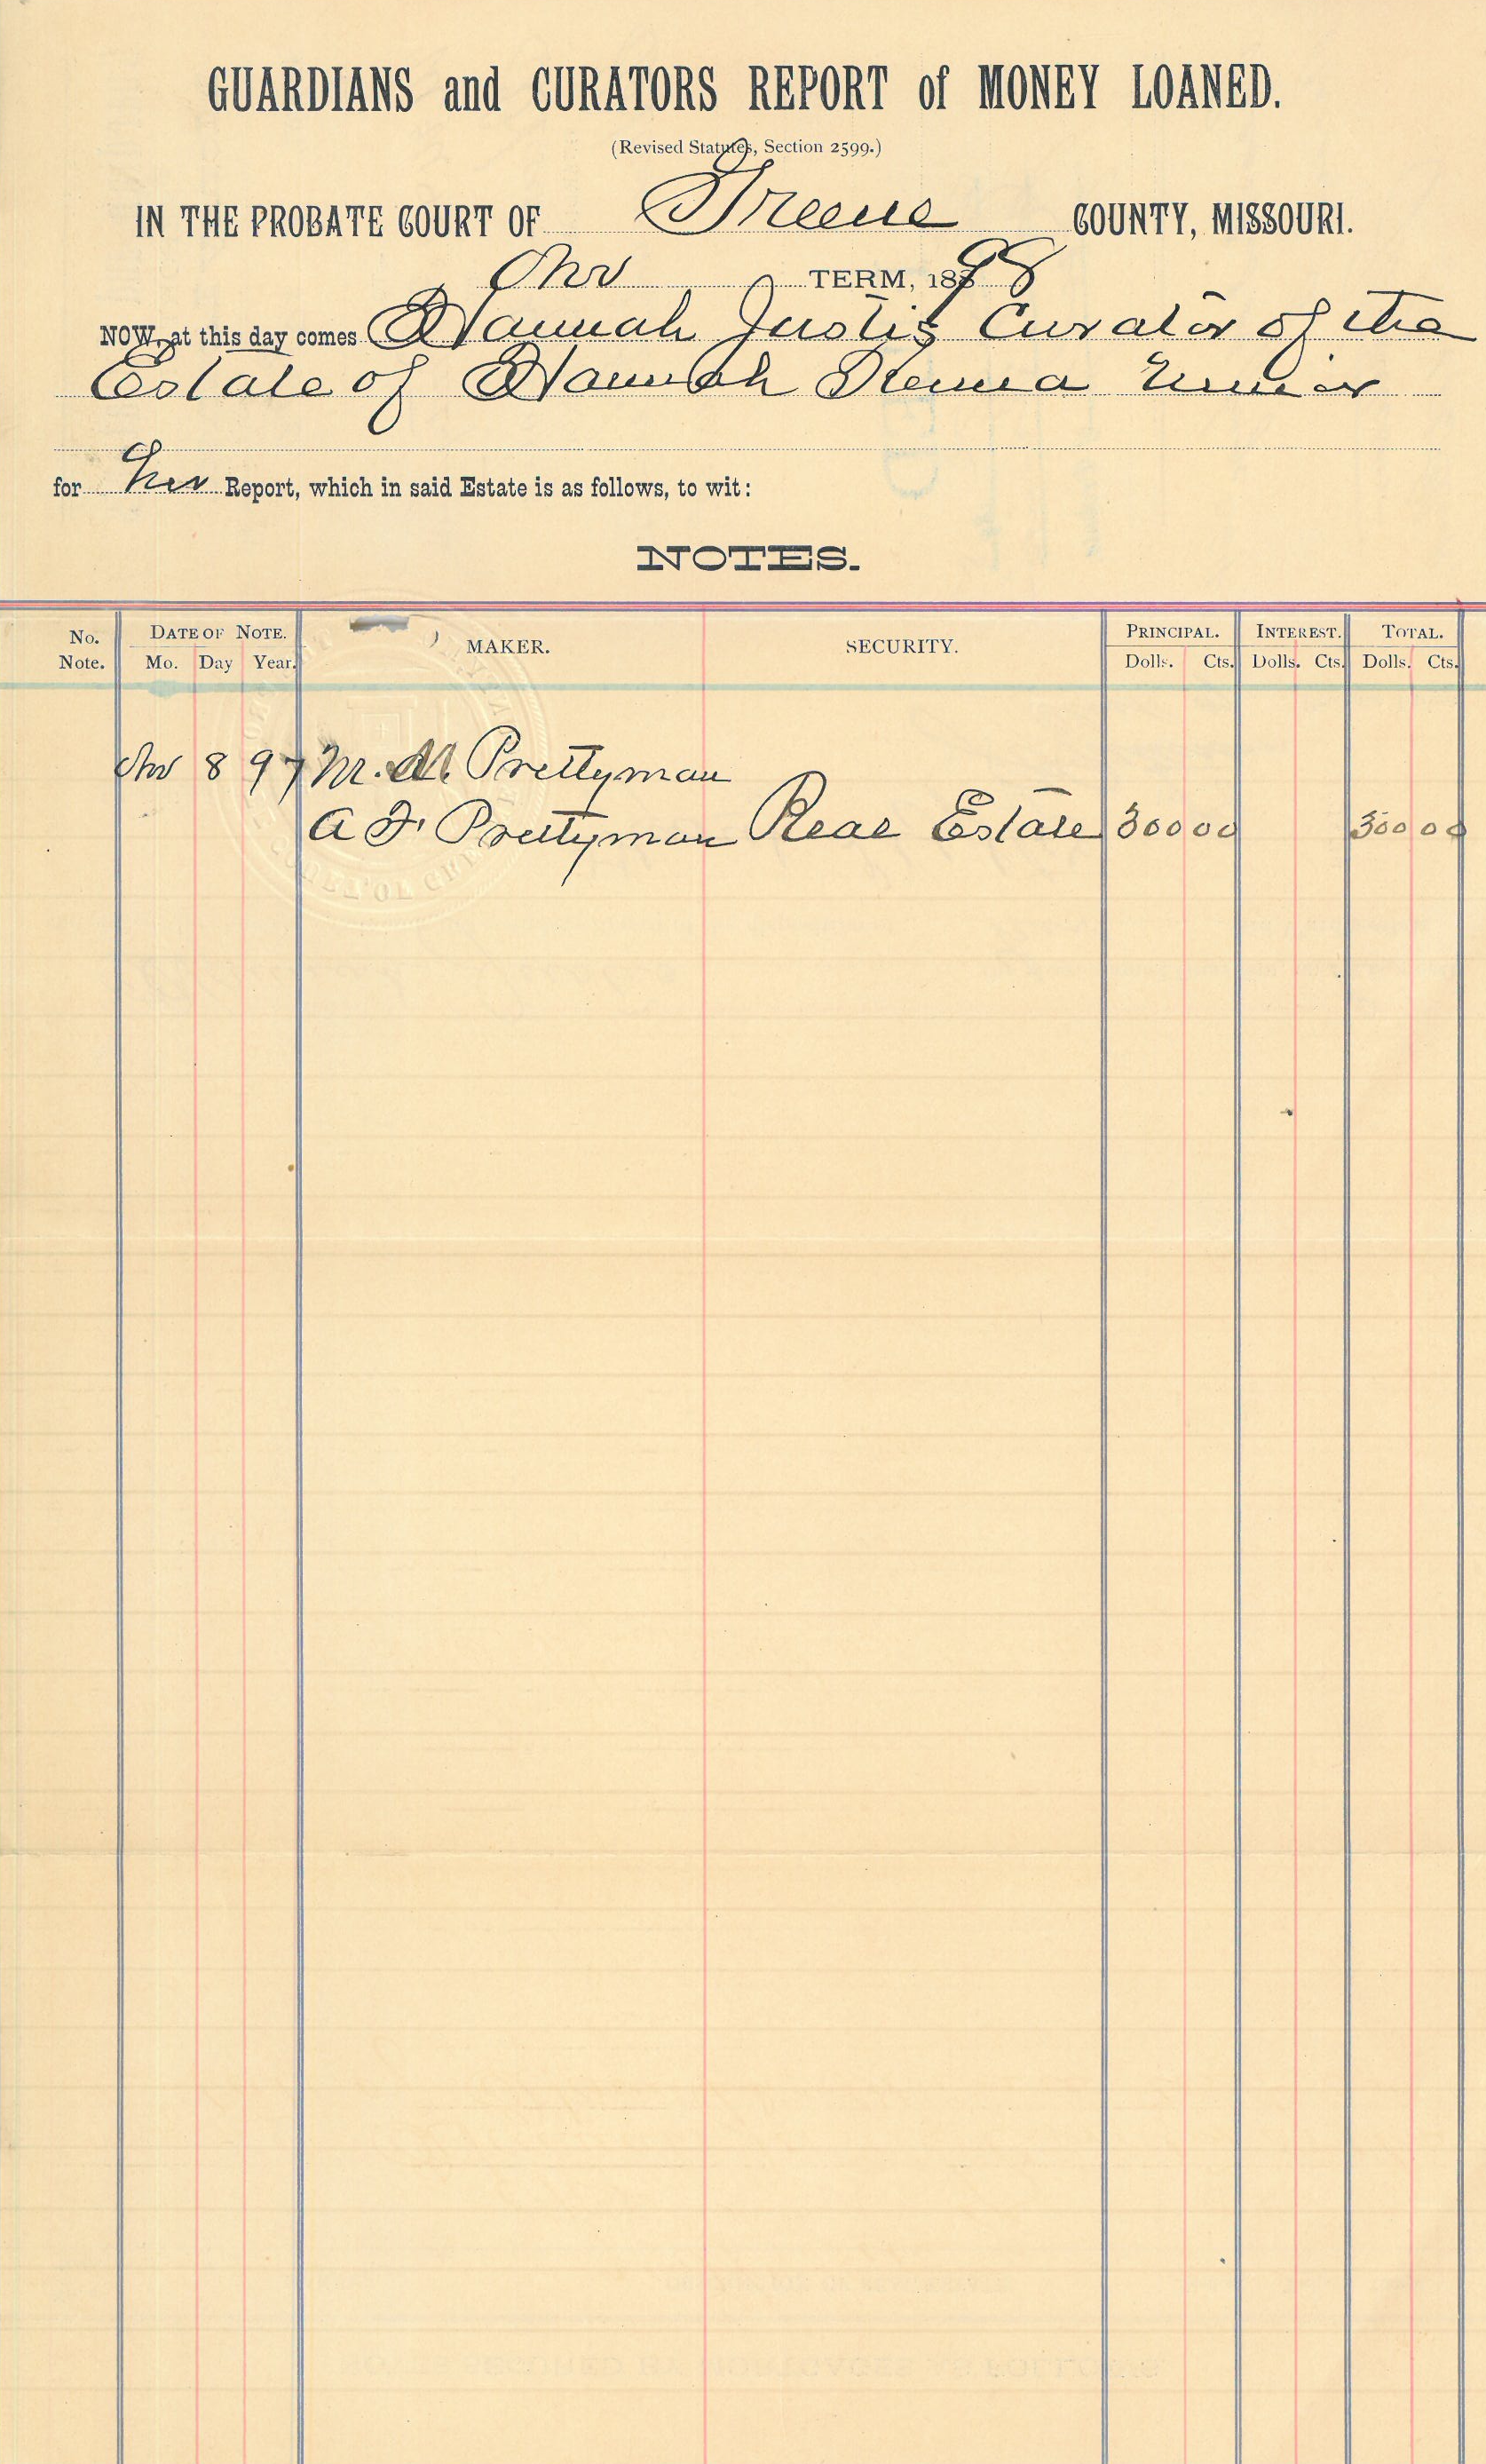 GUARDIANS and CURATORS REPORT of MONEY LOANED.
(Revised Statutes, Section 2599.)
IN THE PROBATE COURT OF Greene COUNTY, MISSOURI.
Nov TERM, 1898
NOW, at this day comes Hannah Justis Curator of the
Estate of Hannah Kenna minor
for her Report, which in said Estate is as follows, to wit:
NOTES.
No. Note. DATE OF NOTE. Mo. Day Year. MAKER. SECURITY. PRINCIPAL. Dolls. Cts. INTEREST. Dolls. Cts. TOTAL. Dolls. Cts.
Nov 8 97 M. M. Prettyman
A F Prettyman Real Estate 300 00 300 00